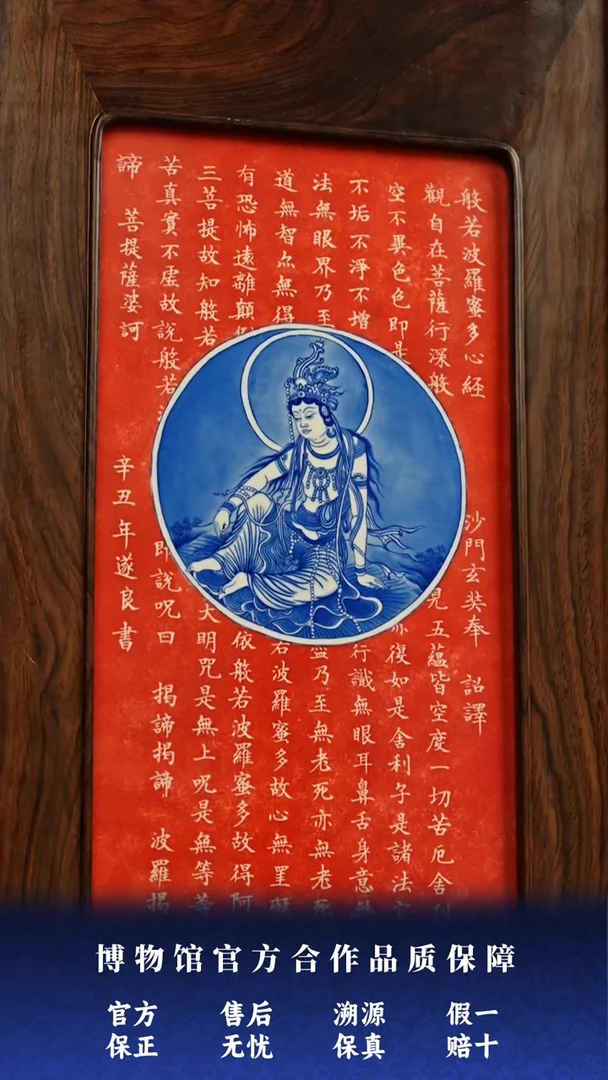 般若波羅蜜多心經 沙門玄奘奉 詔譯
觀自在菩薩行深般 見五蘊皆空度一切苦厄舍利
空不異色色即是 亦復如是舍利子是諸法空
不垢不淨不增 行識無眼耳鼻舌身意
法無眼界乃至 盡乃至無老死亦無老死
道無智亦無得 若波羅蜜多故心無罣礙
有恐怖遠離顛倒 依般若波羅蜜多故得阿
三菩提故知般若 大明咒是無上呪是無等等
苦真實不虛故說般若 即說呪曰 揭諦揭諦 波羅揭
諦 菩提薩婆訶 辛丑年遂良書
博物馆官方合作品质保障
官方保正
售后无忧
溯源保真
假一赔十